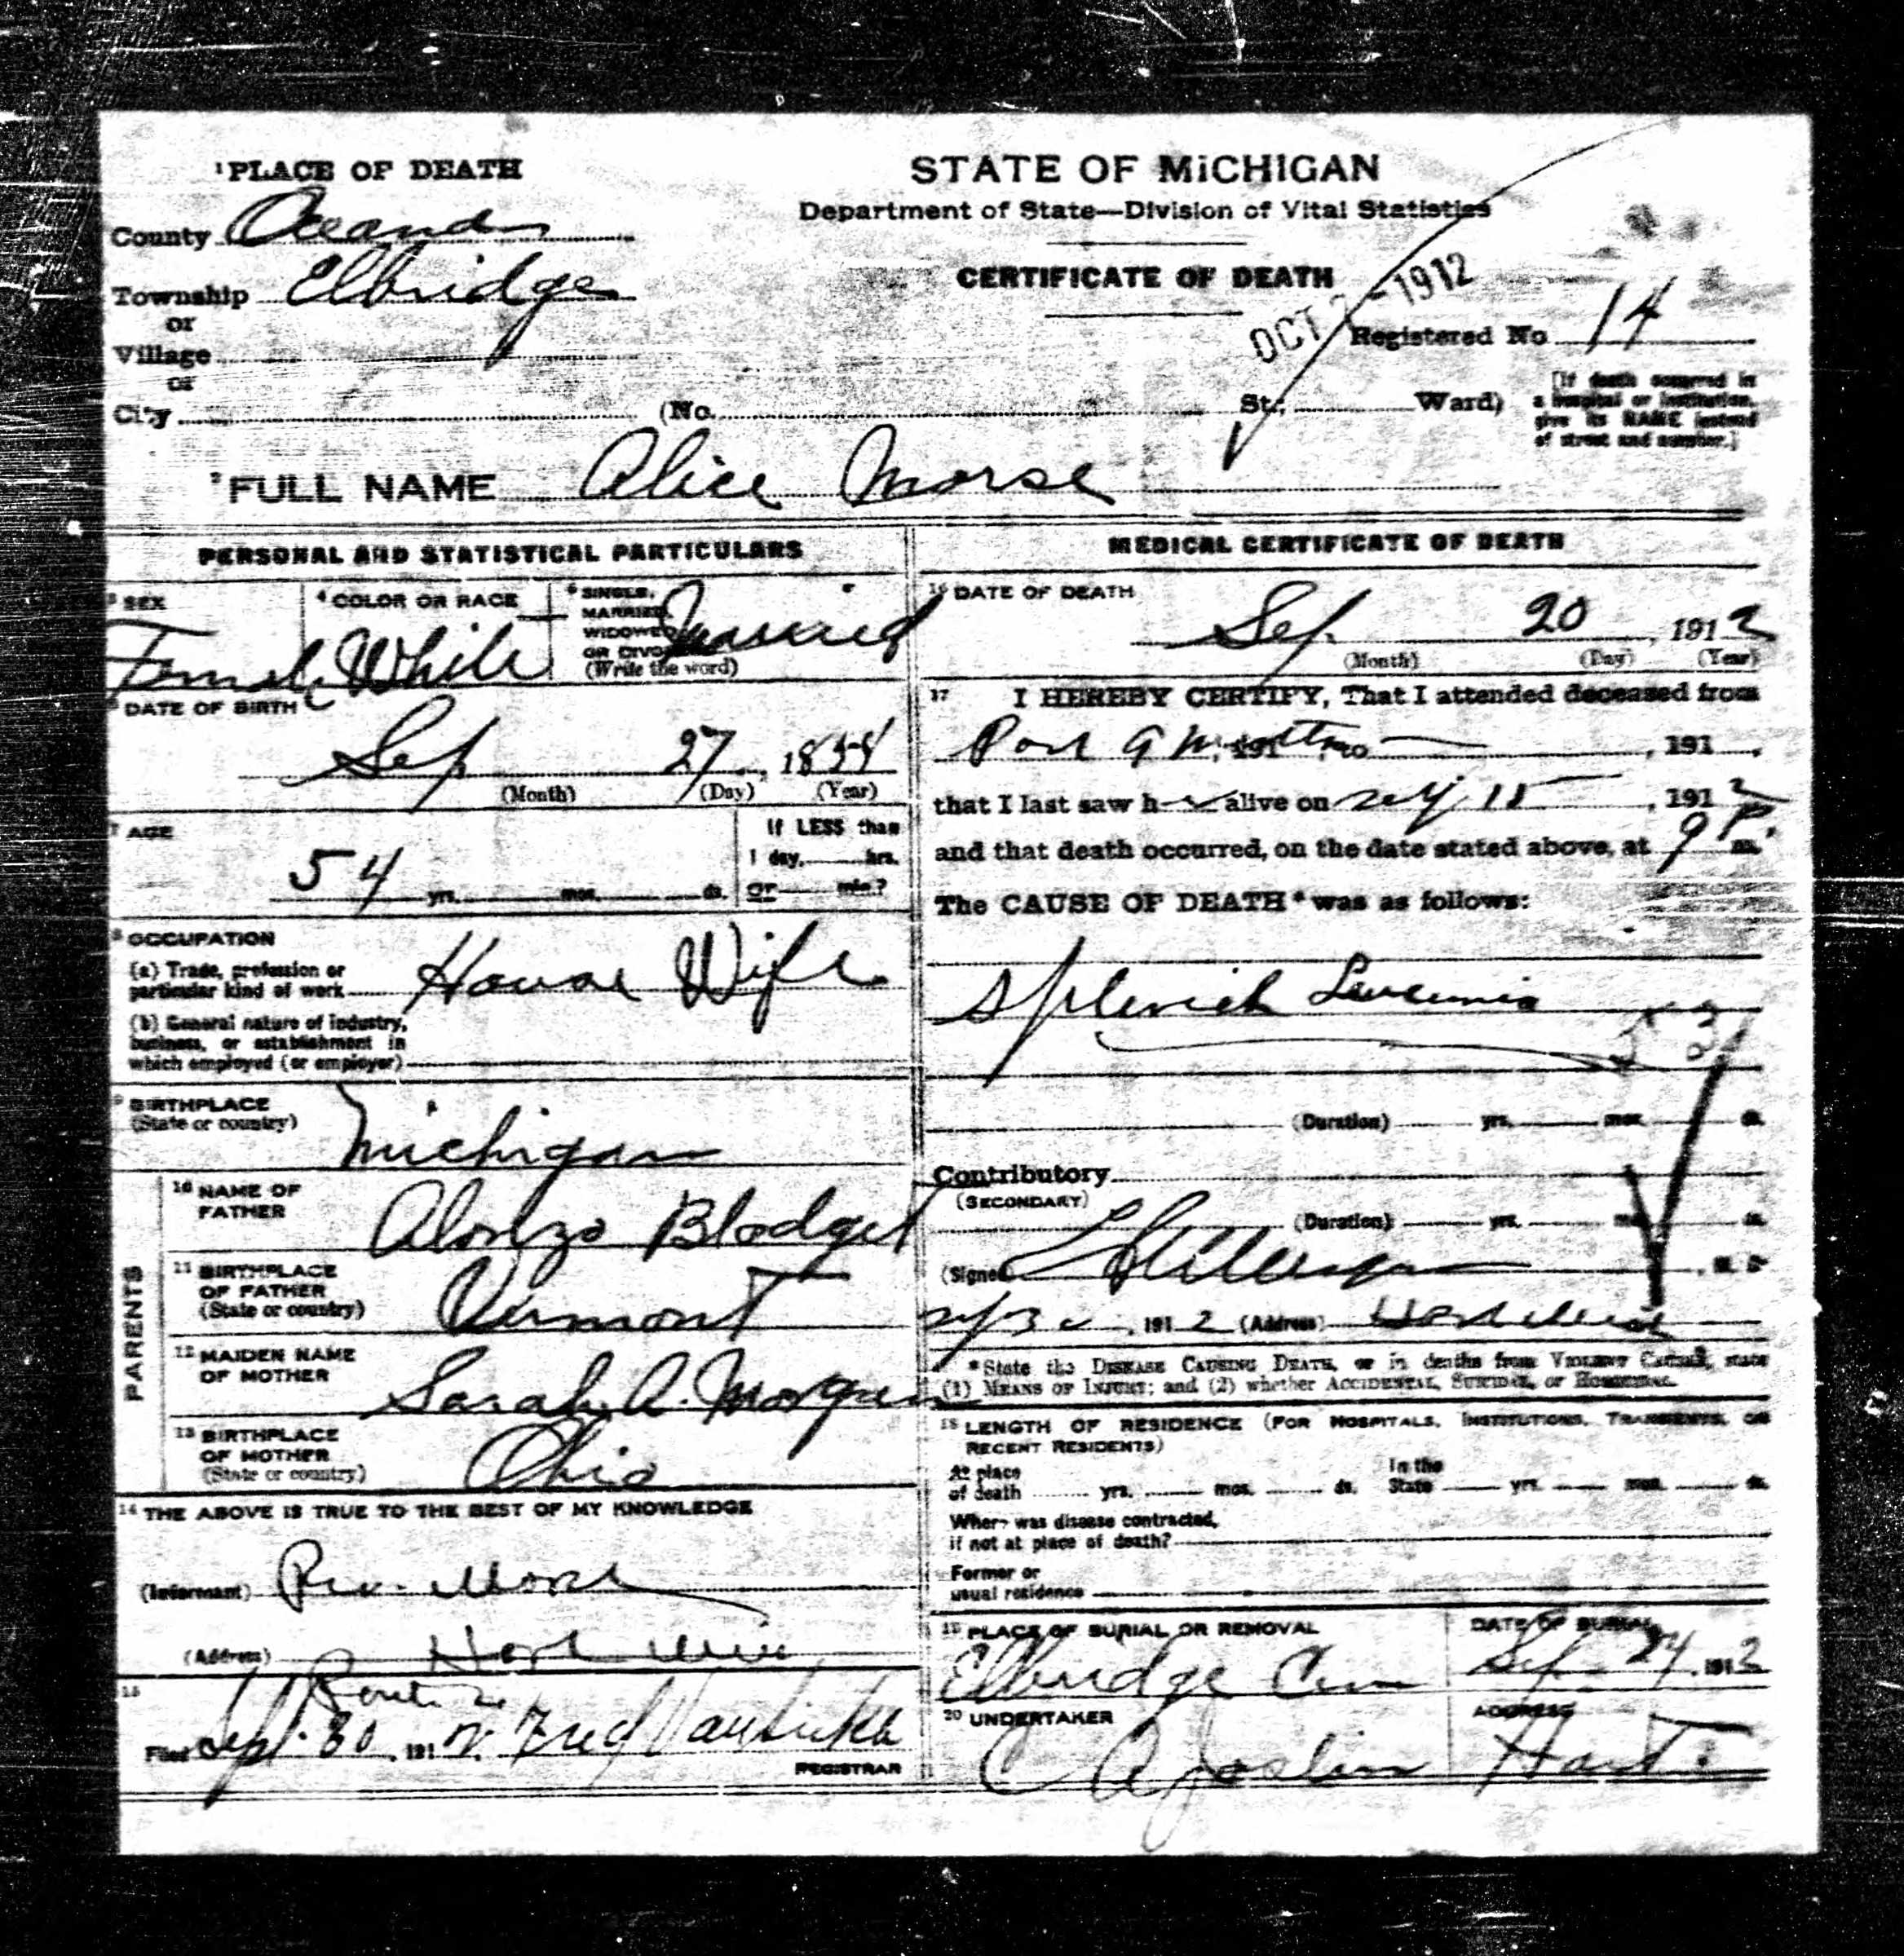 1 PLACE OF DEATH
County Oceana
Township Elbridge
or
Village
or
City (No. St.; Ward)
STATE OF MICHIGAN
Department of State—Division of Vital Statistics
CERTIFICATE OF DEATH
OCT -1912
Registered No 14
[If death occurred in
a hospital or institution,
give its NAME instead
of street and number.]
2 FULL NAME Alice Morse
PERSONAL AND STATISTICAL PARTICULARS
3 SEX
Female
4 COLOR OR RACE
White
5 SINGLE,
MARRIED,
WIDOWED
OR DIVORCED
(Write the word)
Married
6 DATE OF BIRTH
Sep 27, 18
(Month) (Day) (Year)
7 AGE
54 yrs. mos. ds.
If LESS than
1 day, hrs.
or min.?
8 OCCUPATION
(a) Trade, profession or
particular kind of work House Wife
(b) General nature of industry,
business, or establishment in
which employed (or employer)
9 BIRTHPLACE
(State or country)
Michigan
PARENTS
10 NAME OF
FATHER
Alonzo Blodget
11 BIRTHPLACE
OF FATHER
(State or country)
Vermont
12 MAIDEN NAME
OF MOTHER
Sarah A. Morgan
13 BIRTHPLACE
OF MOTHER
(State or country)
Ohio
14 THE ABOVE IS TRUE TO THE BEST OF MY KNOWLEDGE
(Informant) Morse
(Address) Hart Mich
Route 2
15
Filed Sept. 30, 1912. Fred
REGISTRAR
MEDICAL CERTIFICATE OF DEATH
16 DATE OF DEATH
Sep. 20, 1912
(Month) (Day) (Year)
17 I HEREBY CERTIFY, That I attended deceased from
, 191 , to , 191 ,
that I last saw h alive on 15, 1912
and that death occurred, on the date stated above, at 9 P. m.
The CAUSE OF DEATH* was as follows:
Splenich
(Duration) yrs. mos. ds.
Contributory
(SECONDARY)
(Duration) yrs. mos. ds.
(Signed) , M. D.
, 1912 (Address) Hart Mich
*State the DISEASE CAUSING DEATH, or in deaths from VIOLENT CAUSES, state
(1) MEANS OF INJURY; and (2) whether ACCIDENTAL, SUICIDAL, or HOMICIDAL.
18 LENGTH OF RESIDENCE (FOR HOSPITALS, INSTITUTIONS, TRANSIENTS, OR
RECENT RESIDENTS)
At place
of death yrs. mos. ds.
In the
State yrs. mos. ds.
Where was disease contracted,
if not at place of death?
Former or
usual residence
19 PLACE OF BURIAL OR REMOVAL
Elbridge Cem
DATE OF BURIAL
Sep. 24, 1912
20 UNDERTAKER
C A Joslin
ADDRESS
Hart